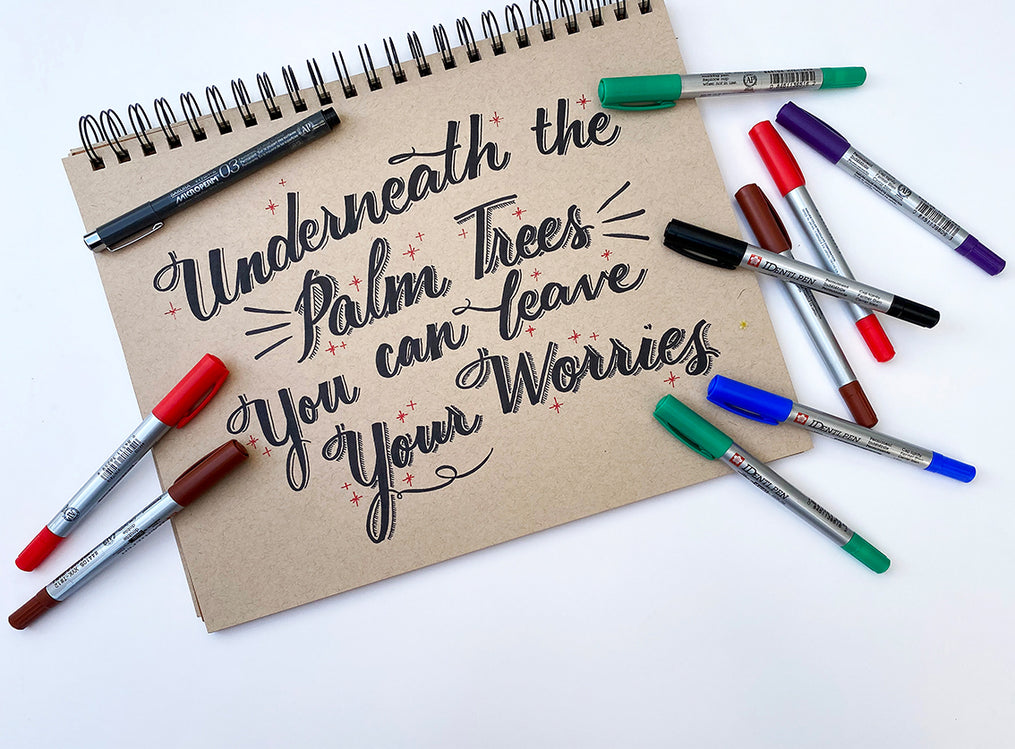 Underneath the
Palm Trees
You can leave
Your Worries
SAKURA
MICROPERM 03
IDENTI.PEN
IDENTI.PEN
IDENTI.PEN